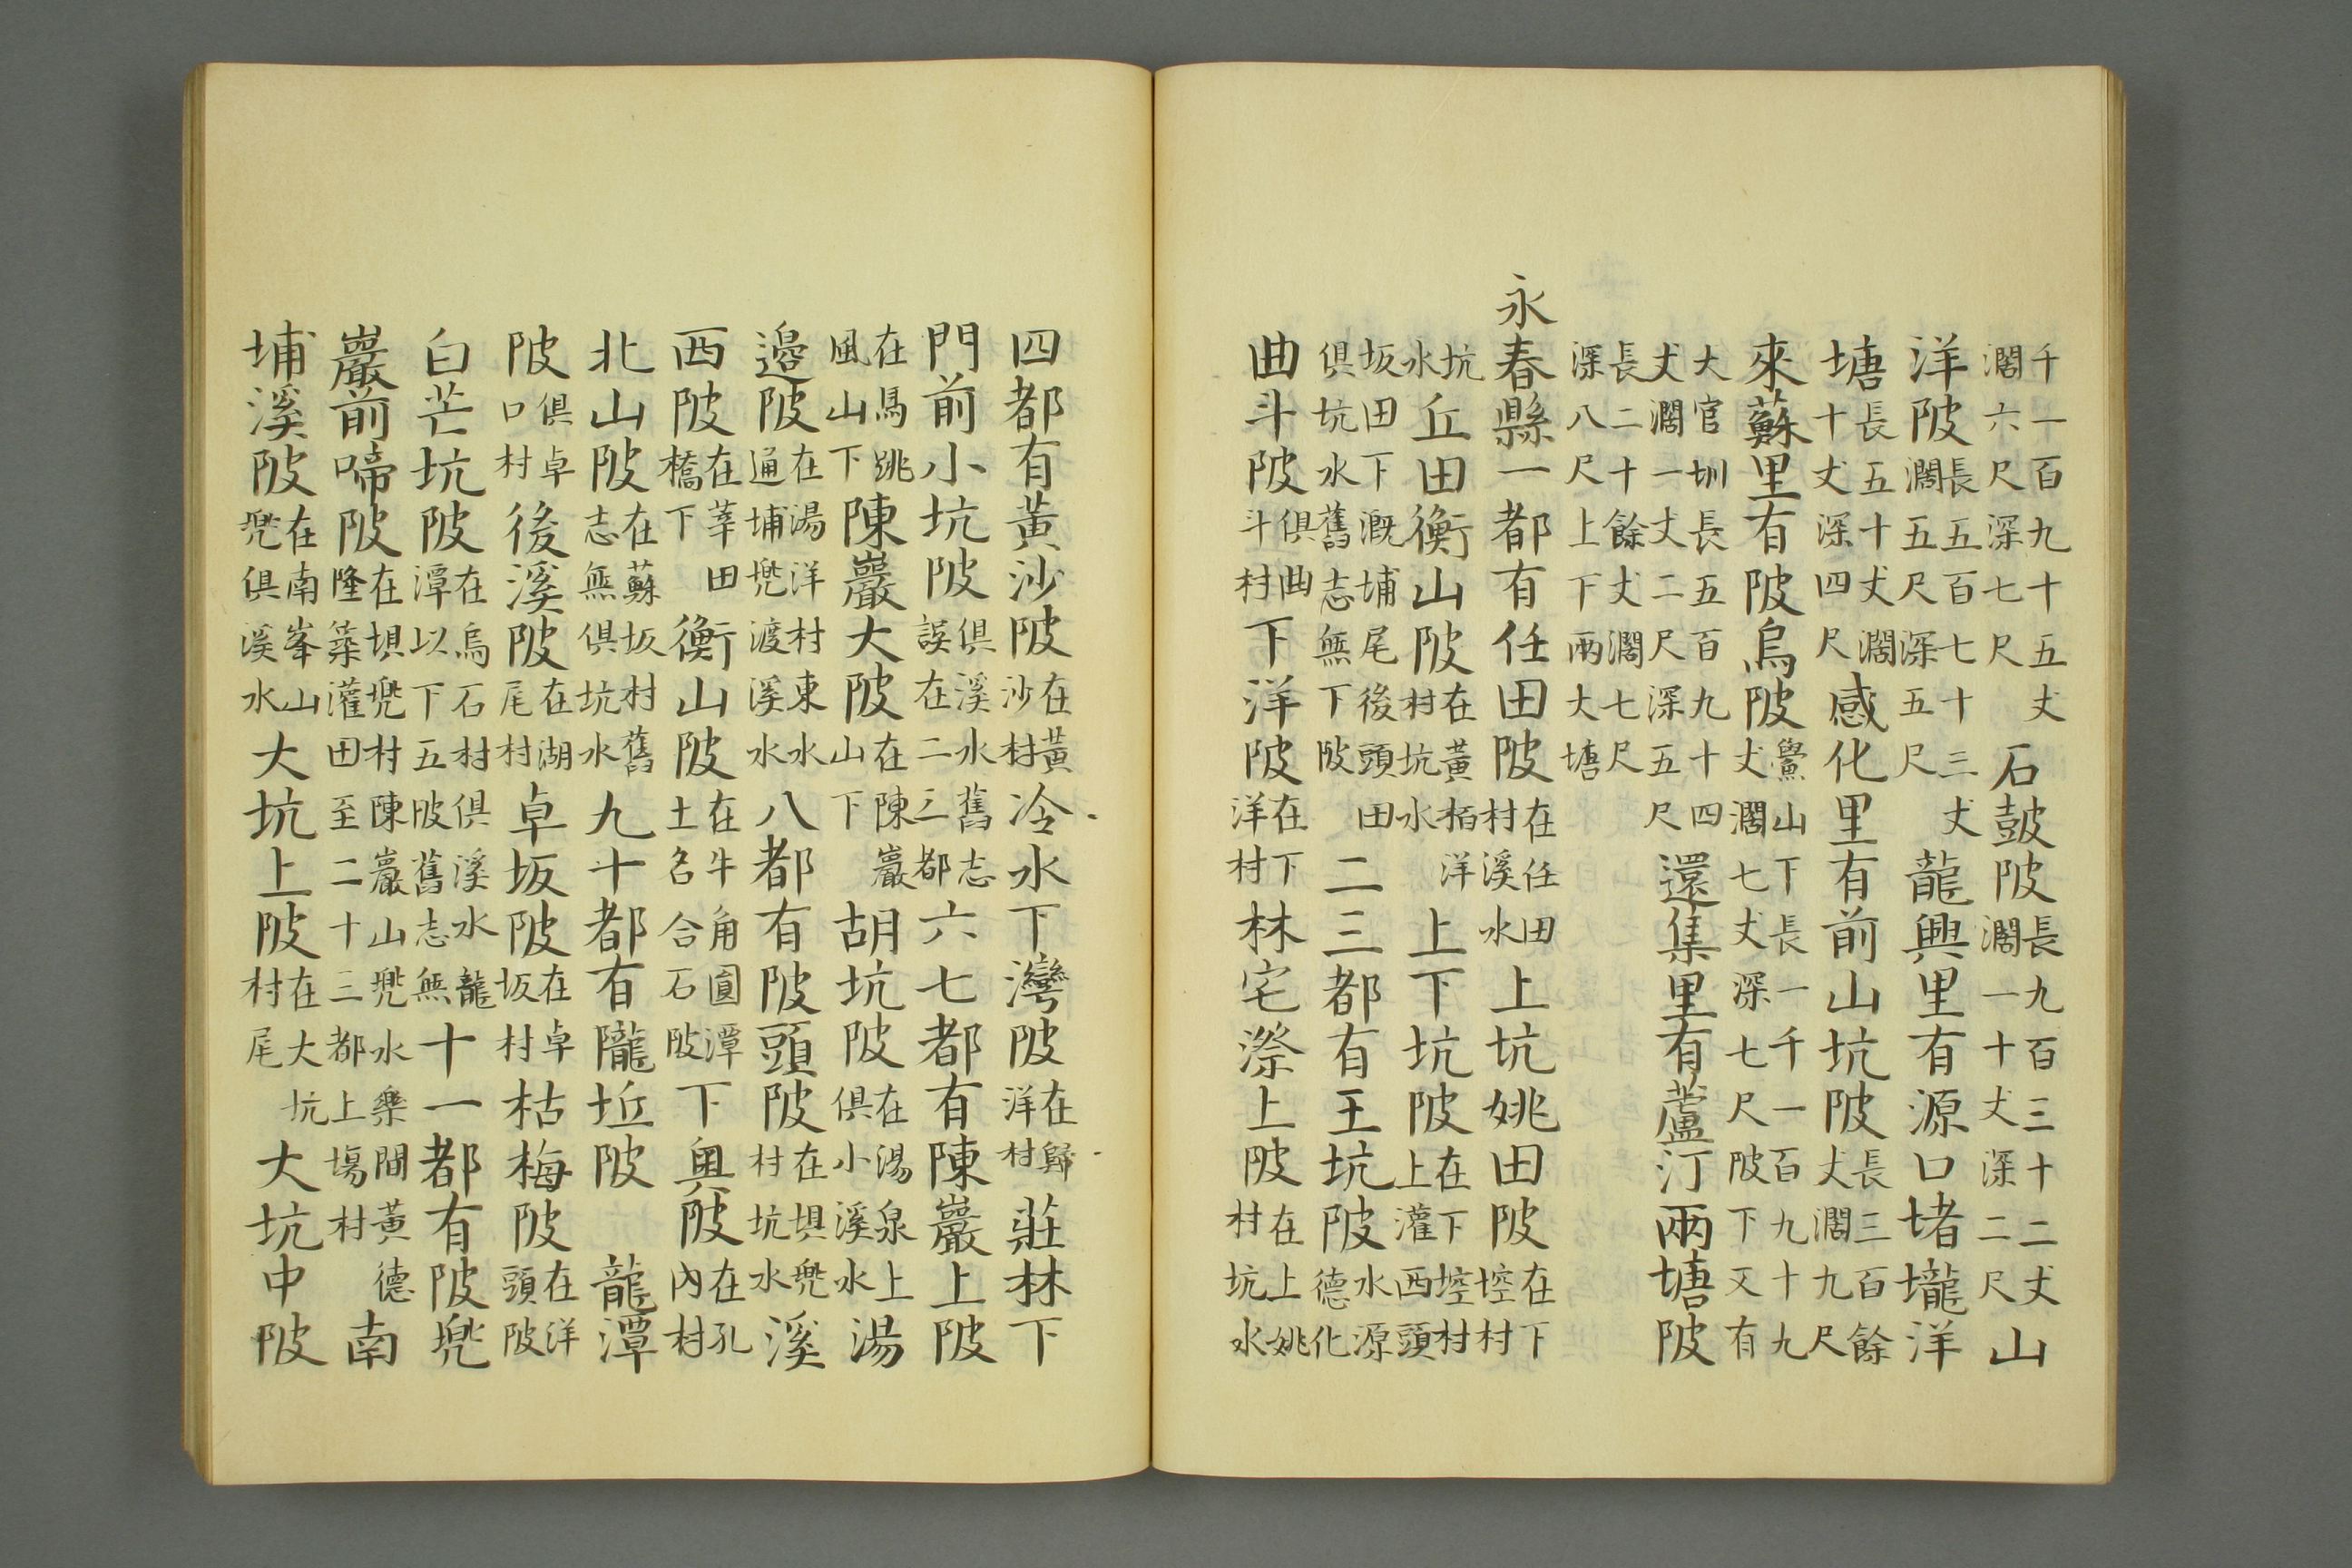 千一百九十五丈濶六尺深七尺石鼓陂長九百三十二丈濶一十丈深二尺山
洋陂長五百七十三丈濶五尺深五尺龍興里有源口堵壠洋
塘長五十丈濶十丈深四尺感化里有前山坑陂長三百餘丈濶九尺
來蘇里有陂烏陂鱟山下長一千一百九十九丈濶七丈深七尺陂下又有
大官圳長五百九十四丈濶一丈二尺深五尺還集里有蘆汀兩塘陂
長二十餘丈濶七尺深八尺上下兩大塘
永春縣一都有任田陂在任田村溪水上坑姚田陂在下埪村
坑水丘田衡山陂在黃栢洋村坑水上下坑陂在下埪村上灌西頭
坂田下溉埔尾後頭田俱坑水舊志無下陂二三都有王坑陂水源德化
曲斗陂俱曲斗村下洋陂在下洋村林宅漈上陂在上姚村坑水
四都有黃沙陂在黃沙村冷水下灣陂在歸洋村莊林下
門前小坑陂俱溪水舊志誤在二三都六七都有陳巖上陂
在馬跳風山下陳巖大陂在陳巖山下胡坑陂在湯泉上俱小溪水湯
邉陂在湯洋村東水通埔兠渡溪水八都有陂頭陂在垻兠村坑水溪
西陂在莘田橋下衡山陂在牛角圓潭土名合石陂下輿陂在孔內村
北山陂在蘇坂村舊志無俱坑水九十都有隴坵陂龍潭
陂俱卓口村後溪陂在湖尾村卓坂陂在卓坂村枯梅陂在洋頭陂
白芒坑陂在烏石村俱溪水龍潭以下五陂舊志無十一都有陂兠
巖前啼陂在垻兠村陳巖山兠水樂間黃德隆築灌田至二十三都上塲村南
埔溪陂在南峯山兠俱溪水大坑上陂在大坑村尾大坑中陂